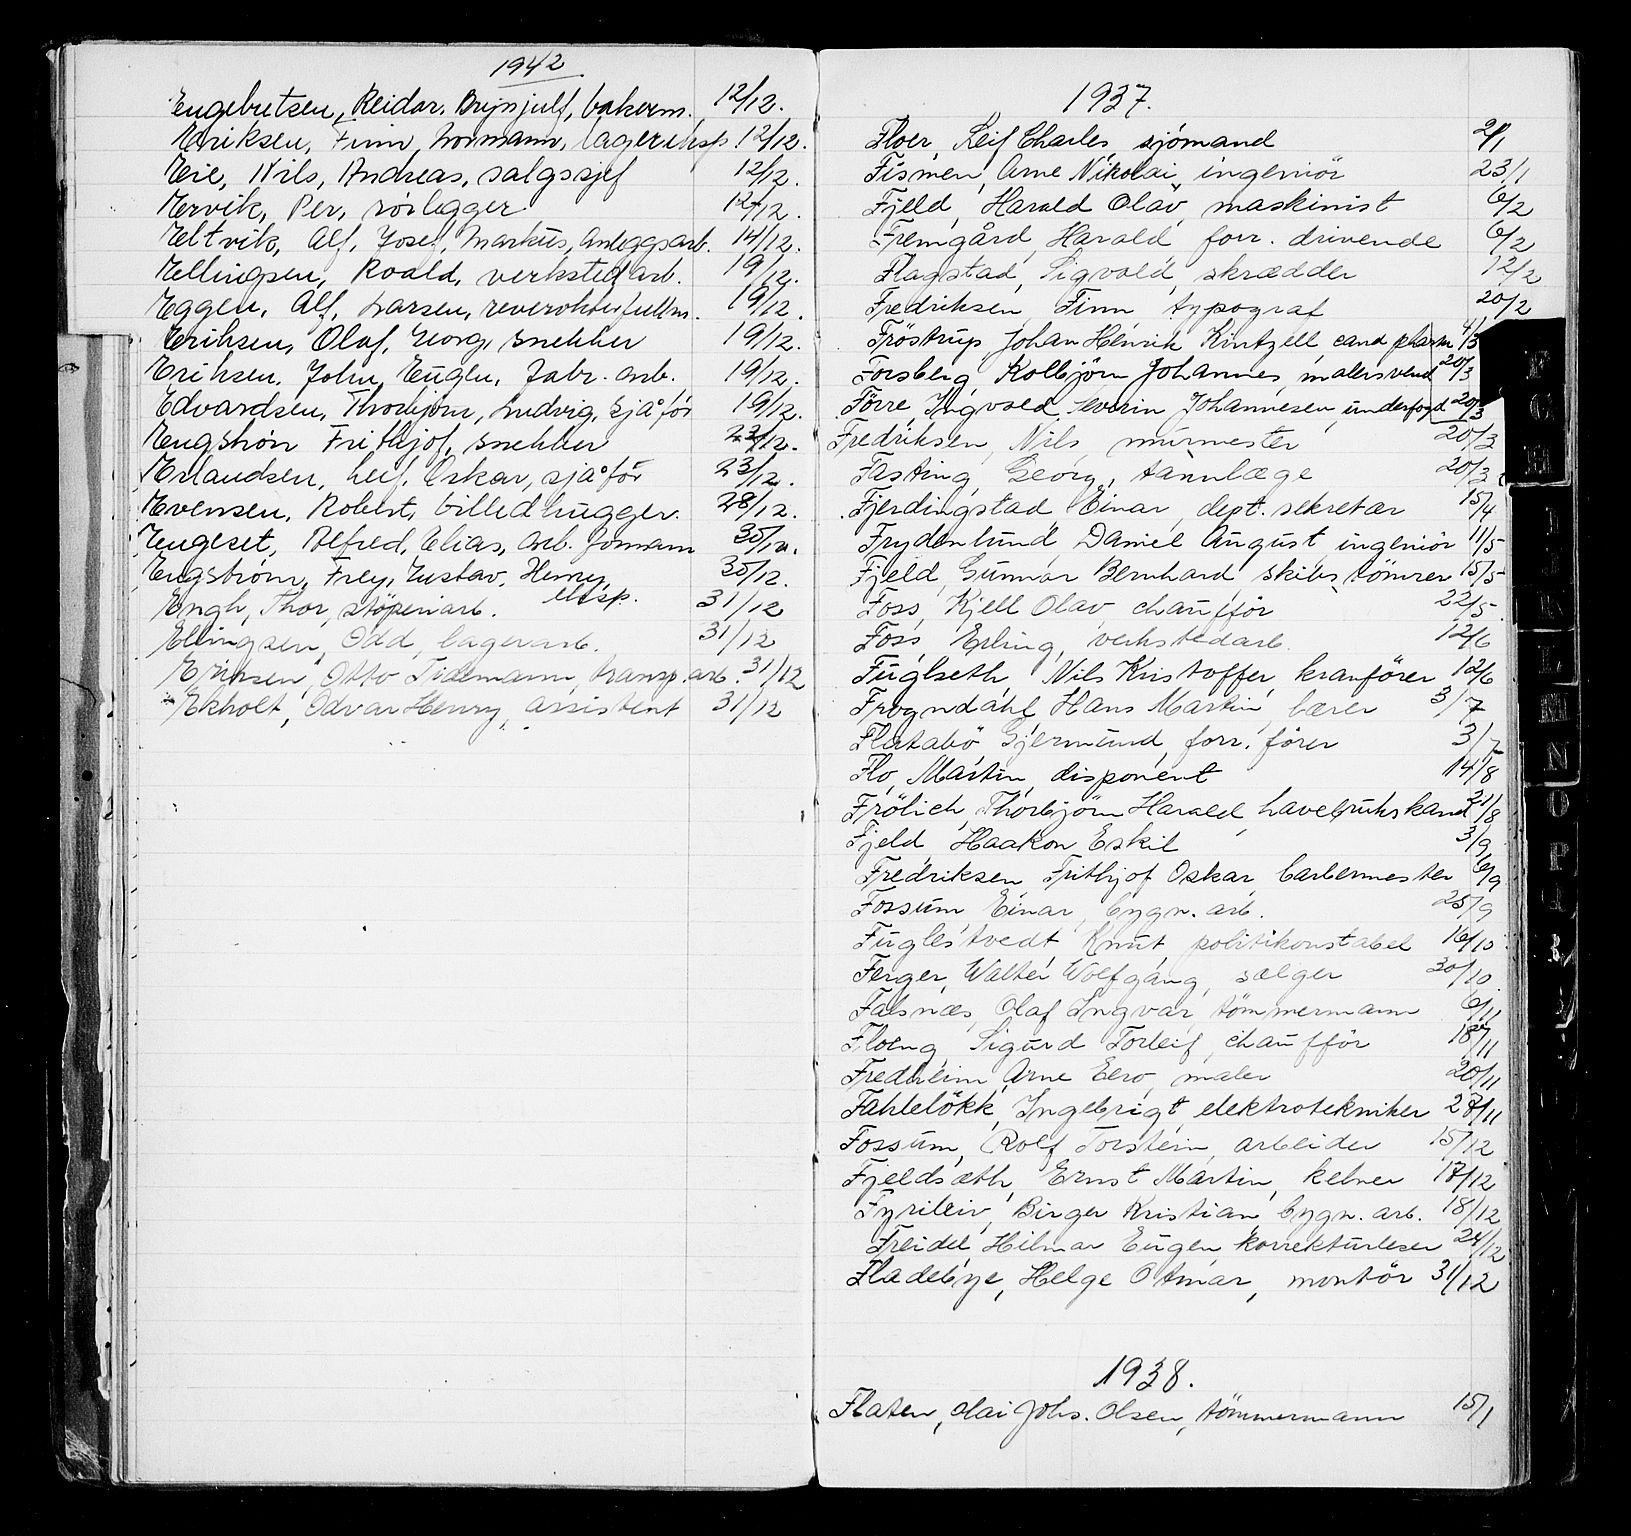 1942
Engebretsen, Reidar, Brynjulf, bakerm. 12/12.
Eriksen, Finn, Normann, lagereksp. 12/12.
Eie, Nils, Andreas, salgssjef 12/12.
Ervik, Per, rörlegger 12/12.
Eltvik, Alf, Josef, Markus, Anleggsarb. 14/12.
Ellingsen, Roald, verkstedarb. 19/12.
Eggen, Alf, Larsen, 19/12.
Eriksen, Olaf, Georg, snekker 19/12.
Eriksen, John, Eugen, Fabr. arb. 19/12.
Edvardsen, Thorbjørn, Ludvig, sjåför 19/12.
Engstrøn Frithjof, snekker 23/12.
Erlandsen, Leif, Oskar, sjåför 23/12.
Evensen, Robert, billedhugger. 28/12.
Engeset, Alfred, Elias, Arb. formann 30/12.
Engstrøm, Frey, Gustav, Henry, eksp. 30/12.
Engh, Thor, støperiarb. 31/12
Ellingsen, Odd, lagerarb. 31/12
Eriksen, Otto Tidemann, transp. arb. 31/12
Ekholt, Odvar Henry, assistent 31/12
1937.
Floer, Leif Charles, sjömand 2/1
Fismen, Arne Nikolai, ingeniör 23/1
Fjeld, Harald Olav, maskinist 6/2
Fremgård, Harald, forr. drivende 6/2
Flagstad, Sigvald, skrædder 12/2
Fredriksen, Finn, typograf 20/2
Fröstrup Johan Henrik Kintzell, cand pharm 4/3
Forsberg, Kolbjörn Johannes, malersvend 20/3
Förre, Ingvald Severin Johannesen, underfogd 20/3
Fredriksen, Nils, murmester 20/3
Fasting, Georg, tannlæge 20/3
Fjerdingstad Einar, dept. sekretær 15/4
Frydenlund Daniel August, ingeniör 11/5
Fjeld, Gunnar Bernhard, skibstömrer 15/5
Foss, Kjell Olav, chafför 22/5
Foss, Erling, verkstedarb. 12/6
Fuglseth, Nils Kristoffer, kranförer 12/6
Frogndahl, Hans Martin, bærer 3/7
Flatabö Gjermund, forr. förer 3/7
Flo, Martin, disponent 14/8
Frölich, Thorbjörn Harald, havebrukskand. 21/8
Fjeld Haakon Eskil 3/9
Fredriksen, Frithjof Oskar, barbermester 6/9
Fossum, Einar, bygn. arb. 25/9
Fuglestvedt, Knut, politikonstabel 16/10
Ferger, Walter Wolfgang, sælger 30/10
Falsnæs, Olaf Ingvar, tömmermann 6/11
Floeng, Sigurd Torleif, chaufför 18/11
Fredheim, Arne Eero, maler 20/11
Fahlelökk, Ingebrigt, elektrotekniker 27/11
Fossum, Rolf Torstein, arbeider 15/12
Fjeldsæth, Ernst Martin, kelner 17/12
Fyrileiv, Birger Kristian, bygn. arb. 18/12
Freidel Hilmar Eugen, korrekturleser 24/12
Fladebye, Helge Otmar, montör 31/12
1938.
Flaten, Olai Johs. Olsen, tömmermann 15/1
F
G
H
I
J
K
L
M
N
O
P
R